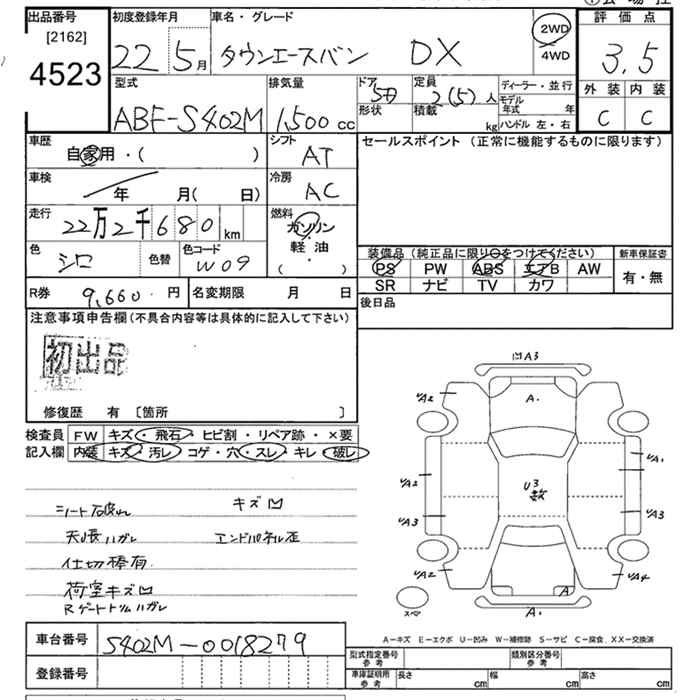 出品番号
[2162]
4523
初度登録年月
22 5月
車名・グレード
タウンエースバン DX
2WD
4WD
評価点
3.5
外装 内装
C C
型式
ABF-S402M
排気量
1,500 cc
ドア
5D
形状
定員
2(5)人
積載
kg
ディーラー・並行
モデル年式 年
ハンドル 左・右
車歴
自家用・( )
シフト
AT
車検
年 月( 日)
冷房
AC
走行
22万2千680 km
燃料
ガソリン
軽油
( ・ )
色
シロ
色替
色コード
W09
R券 9,660 円
名変期限 月 日
セールスポイント (正常に機能するものに限ります)
装備品(純正品に限り○をつけてください)
PS PW ABS エアB AW
SR ナビ TV カワ
新車保証書
有・無
後日品
注意事項申告欄(不具合内容等は具体的に記入して下さい)
初出品
修復歴 有 〔箇所 〕
検査員
記入欄
FW キズ・飛石・ヒビ割・リペア跡・×要
内装 キズ・汚レ・コゲ・穴・スレ・キレ・破レ
シート破れ キズ凹
天張ハガレ エンドパネル歪
仕切棒有
荷室キズ凹
Rゲートトリムハガレ
凹A3
A.
UA2
UA2
UA3
UA2
U3
数
UA1
UA3
UA4
A
A.
スペア
A－キズ E－エクボ U－凹み W－補修跡 S－サビ C－腐食 XX－交換済
車台番号
S402M-0018279
登録番号
型式指定番号
参考
類別区分番号
参考
車庫証明用
参考
長さ cm
幅 cm
高さ cm